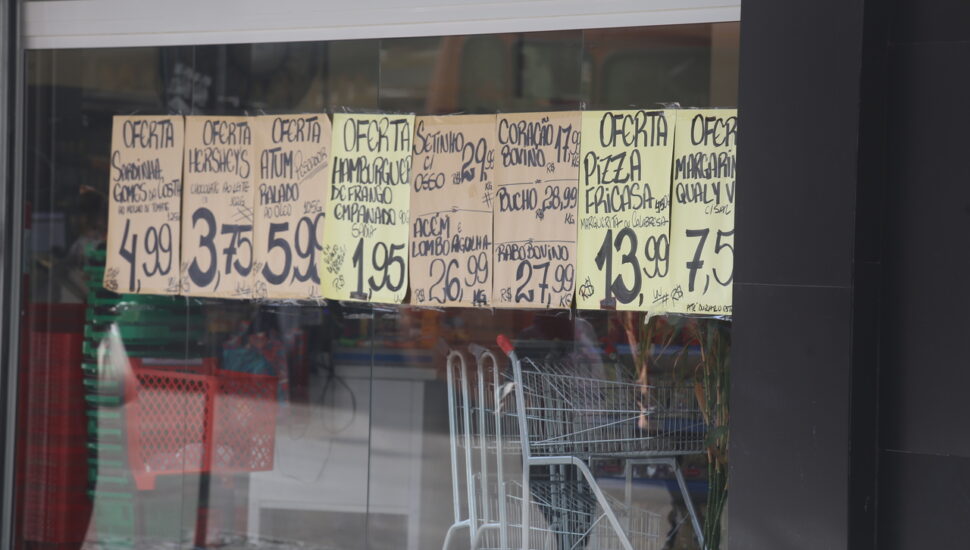 OFERTA
SARDINHA
GOMES DA COSTA
4,99
OFERTA
HERSHEYS
CHOCOLATE AO LEITE
3,75
OFERTA
ATUM
RALADO
AO ÓLEO
5,99
OFERTA
HAMBURGUER
DE FRANGO
EMPANADO
SADIA
1,95
R$
SETINHO
C/
OSSO
R$ 29,99
ACÉM E
LOMBO AGULHA
R$ 26,99
KG
CORAÇÃO
BOVINO
R$ 17,99
BUCHO R$ 28,99
KG
RABO BOVINO
R$ 27,99
KG
OFERTA
PIZZA
FRICASA
MARGUERITA OU CALABRESA
R$ 13,99
OFER
MARGARIN
QUALY
C/SAL
R$ 7,5